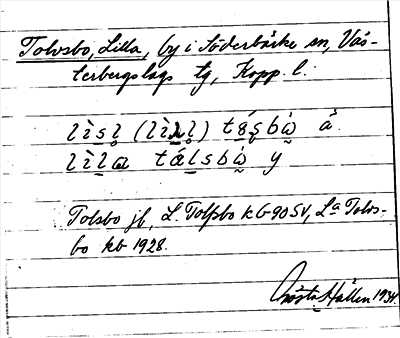 Tolvsbo, Lilla, by i Söderbärke sn, Väs-
terbergslags tg, Kopp. l.
lìsl̥ (lìl̥) tɑ́s̨bὼ å.
lìla tálsbὼ y
Tolsbo jb, L. Tolfsbo kb 90 SV, La Tolvs-
bo kb 1928.
Gösta Hallen 1934.